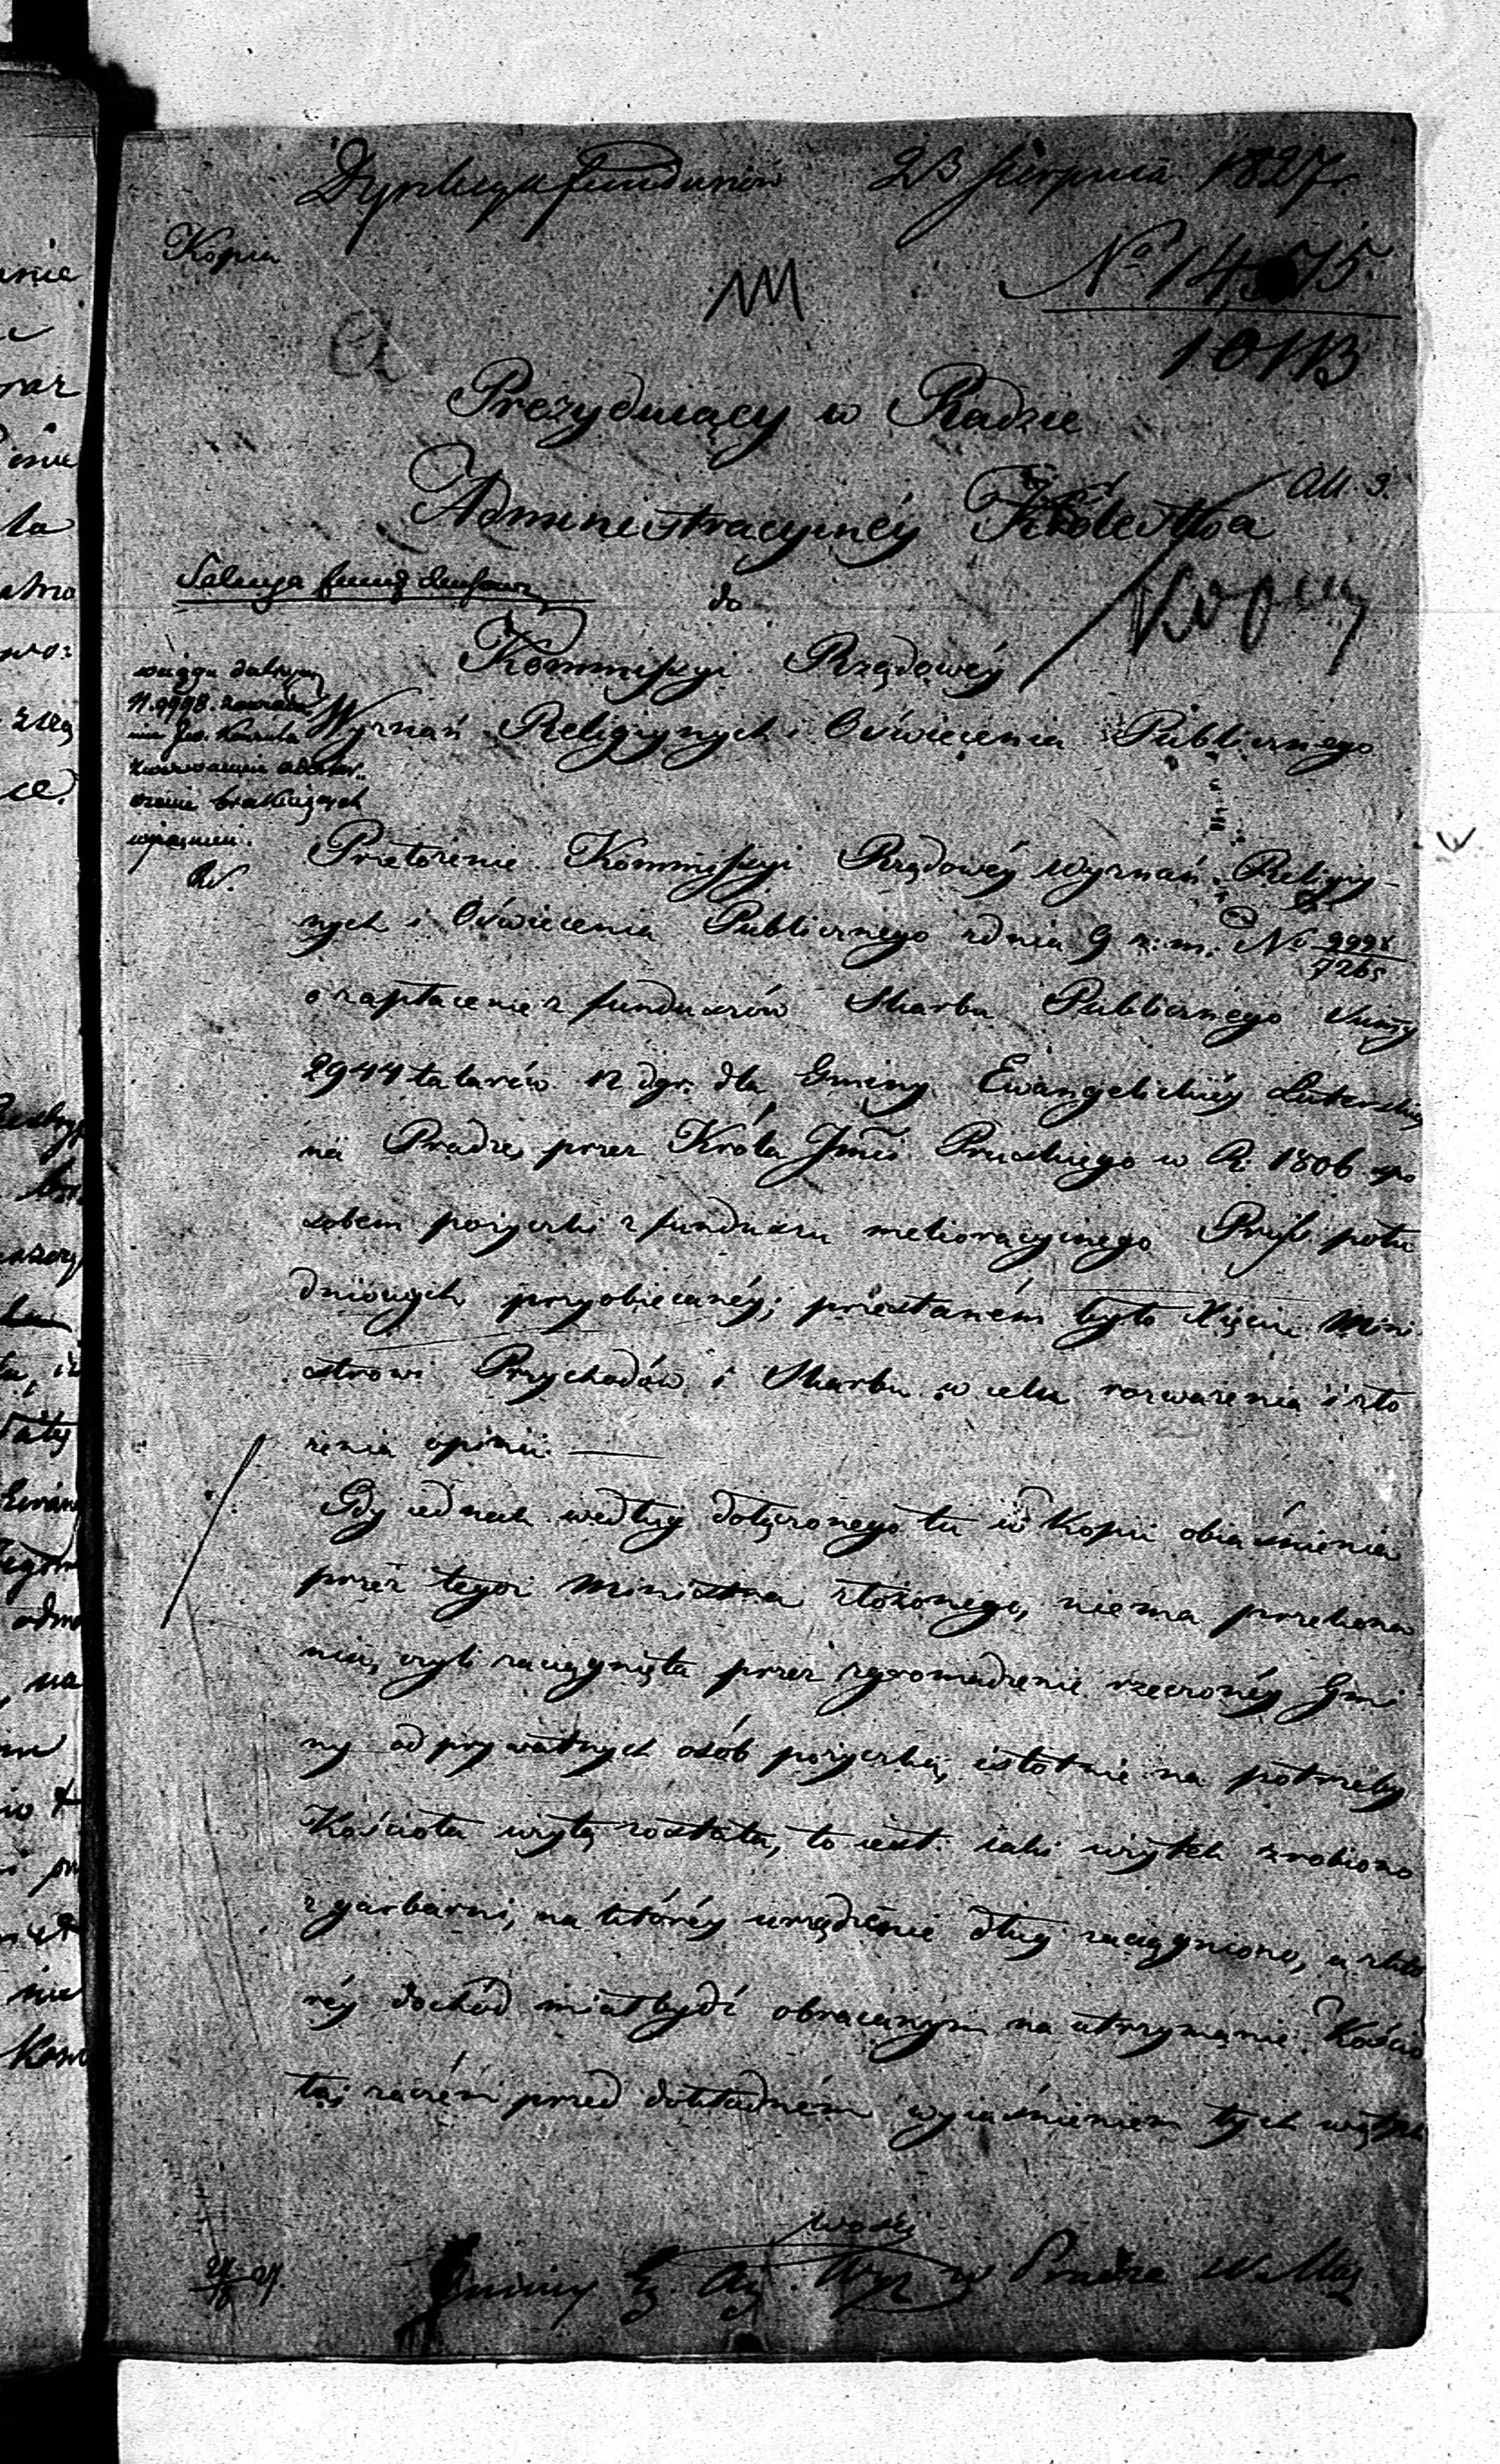 Dyrekcya funduszów 23 Sierpnia 1827.
Kopia
No 14,575
10113
Prezyduiący w Radzie
Administracyinéy Królestwa
All. 3.
Kopia
do
Kommissyi Rządowéy
Wyznań Religiynych i Oświecenia Publicznego
brakuiących
wyiaśnień.
Przełożenie Kommissyi Rządowéy Wyznań Religiy-
nych i Oświecenia Publicznego z dnia 9 z: m: No 9998/7265
o zapłacenie z funduszów Skarbu Publicznego Summy
2944 talarów 12 dgr. dla Gminy Ewangelickiéy Luterskiéy
na Pradze, przez Króla Jmci Pruskiego w R: 1806 spo
sobem pożyczki z funduszu melioracyinego Pruss połu
dniowych przyobiecanéy; przesłaném było Xięciu Mini
strowi Przychodów i Skarbu w celu rozważenia i zło
żenia opinii. —
Gdy iednak według dołączonego tu w Kopii obiaśnienia
przez tegoż Ministra złożonego, niema przekona
nia, czyli zaciągnięta przez zgromadzenie rzeczonéy Gmi
ny od prywatnych osób pożyczka, istotnie na potrzeby
Kościoła użytą została, to iest: iaki użytek zrobiono
z garbarni, na któréy urządzenie dług zaciągniono, a któ
réy dochód miał bydź obracanym na utrzymanie Kościo
ła; zaczém przed dokładném wyiaśnieniem tych wątpli
Gminy Ew. Aug. w Pradze